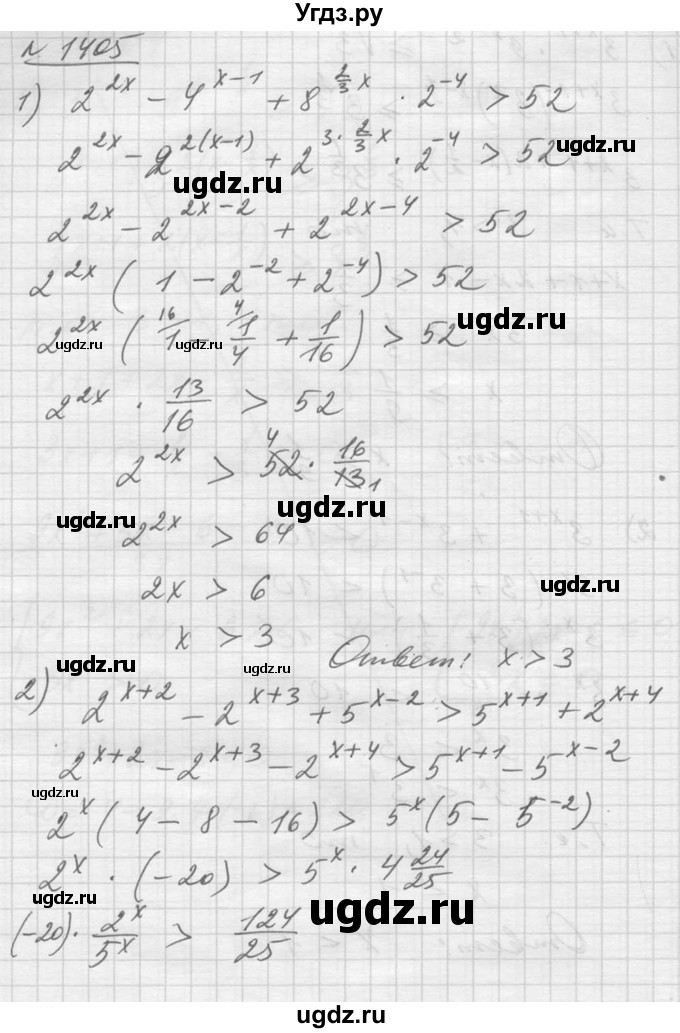 Угдз.ру
№ 1405
1) 2^{2x} - 4^{x-1} + 8^{\frac{2}{3}x} · 2^{-4} > 52
2^{2x} - 2^{2(x-1)} + 2^{3·\frac{2}{3}x} · 2^{-4} > 52
ugdz.ru
ugdz.ru
2^{2x} - 2^{2x-2} + 2^{2x-4} > 52
2^{2x} ( 1 - 2^{-2} + 2^{-4} ) > 52
ugdz.ru
2^{2x} ( \frac{1}{1}^{16} - \frac{1}{4}^{4} + \frac{1}{16} ) > 52
ugdz.ru
ugdz.ru
2^{2x} · \frac{13}{16} > 52
2^{2x} > 52^{4} · \frac{16}{13}_{1}
ugdz.ru
2^{2x} > 64
ugdz.ru
2x > 6
ugdz.ru
x > 3
Ответ: x > 3
ugdz.ru
2) 2^{x+2} - 2^{x+3} + 5^{x-2} > 5^{x+1} + 2^{x+4}
2^{x+2} - 2^{x+3} - 2^{x+4} > 5^{x+1} - 5^{x-2}
ugdz.ru
2^{x} ( 4 - 8 - 16) > 5^{x} (5 - 5^{-2})
2^{x} · (-20) > 5^{x} · 4\frac{24}{25}
ugdz.ru
ugdz.ru
(-20) · \frac{2^{x}}{5^{x}} > \frac{124}{25}
ugdz.ru
ugdz.ru